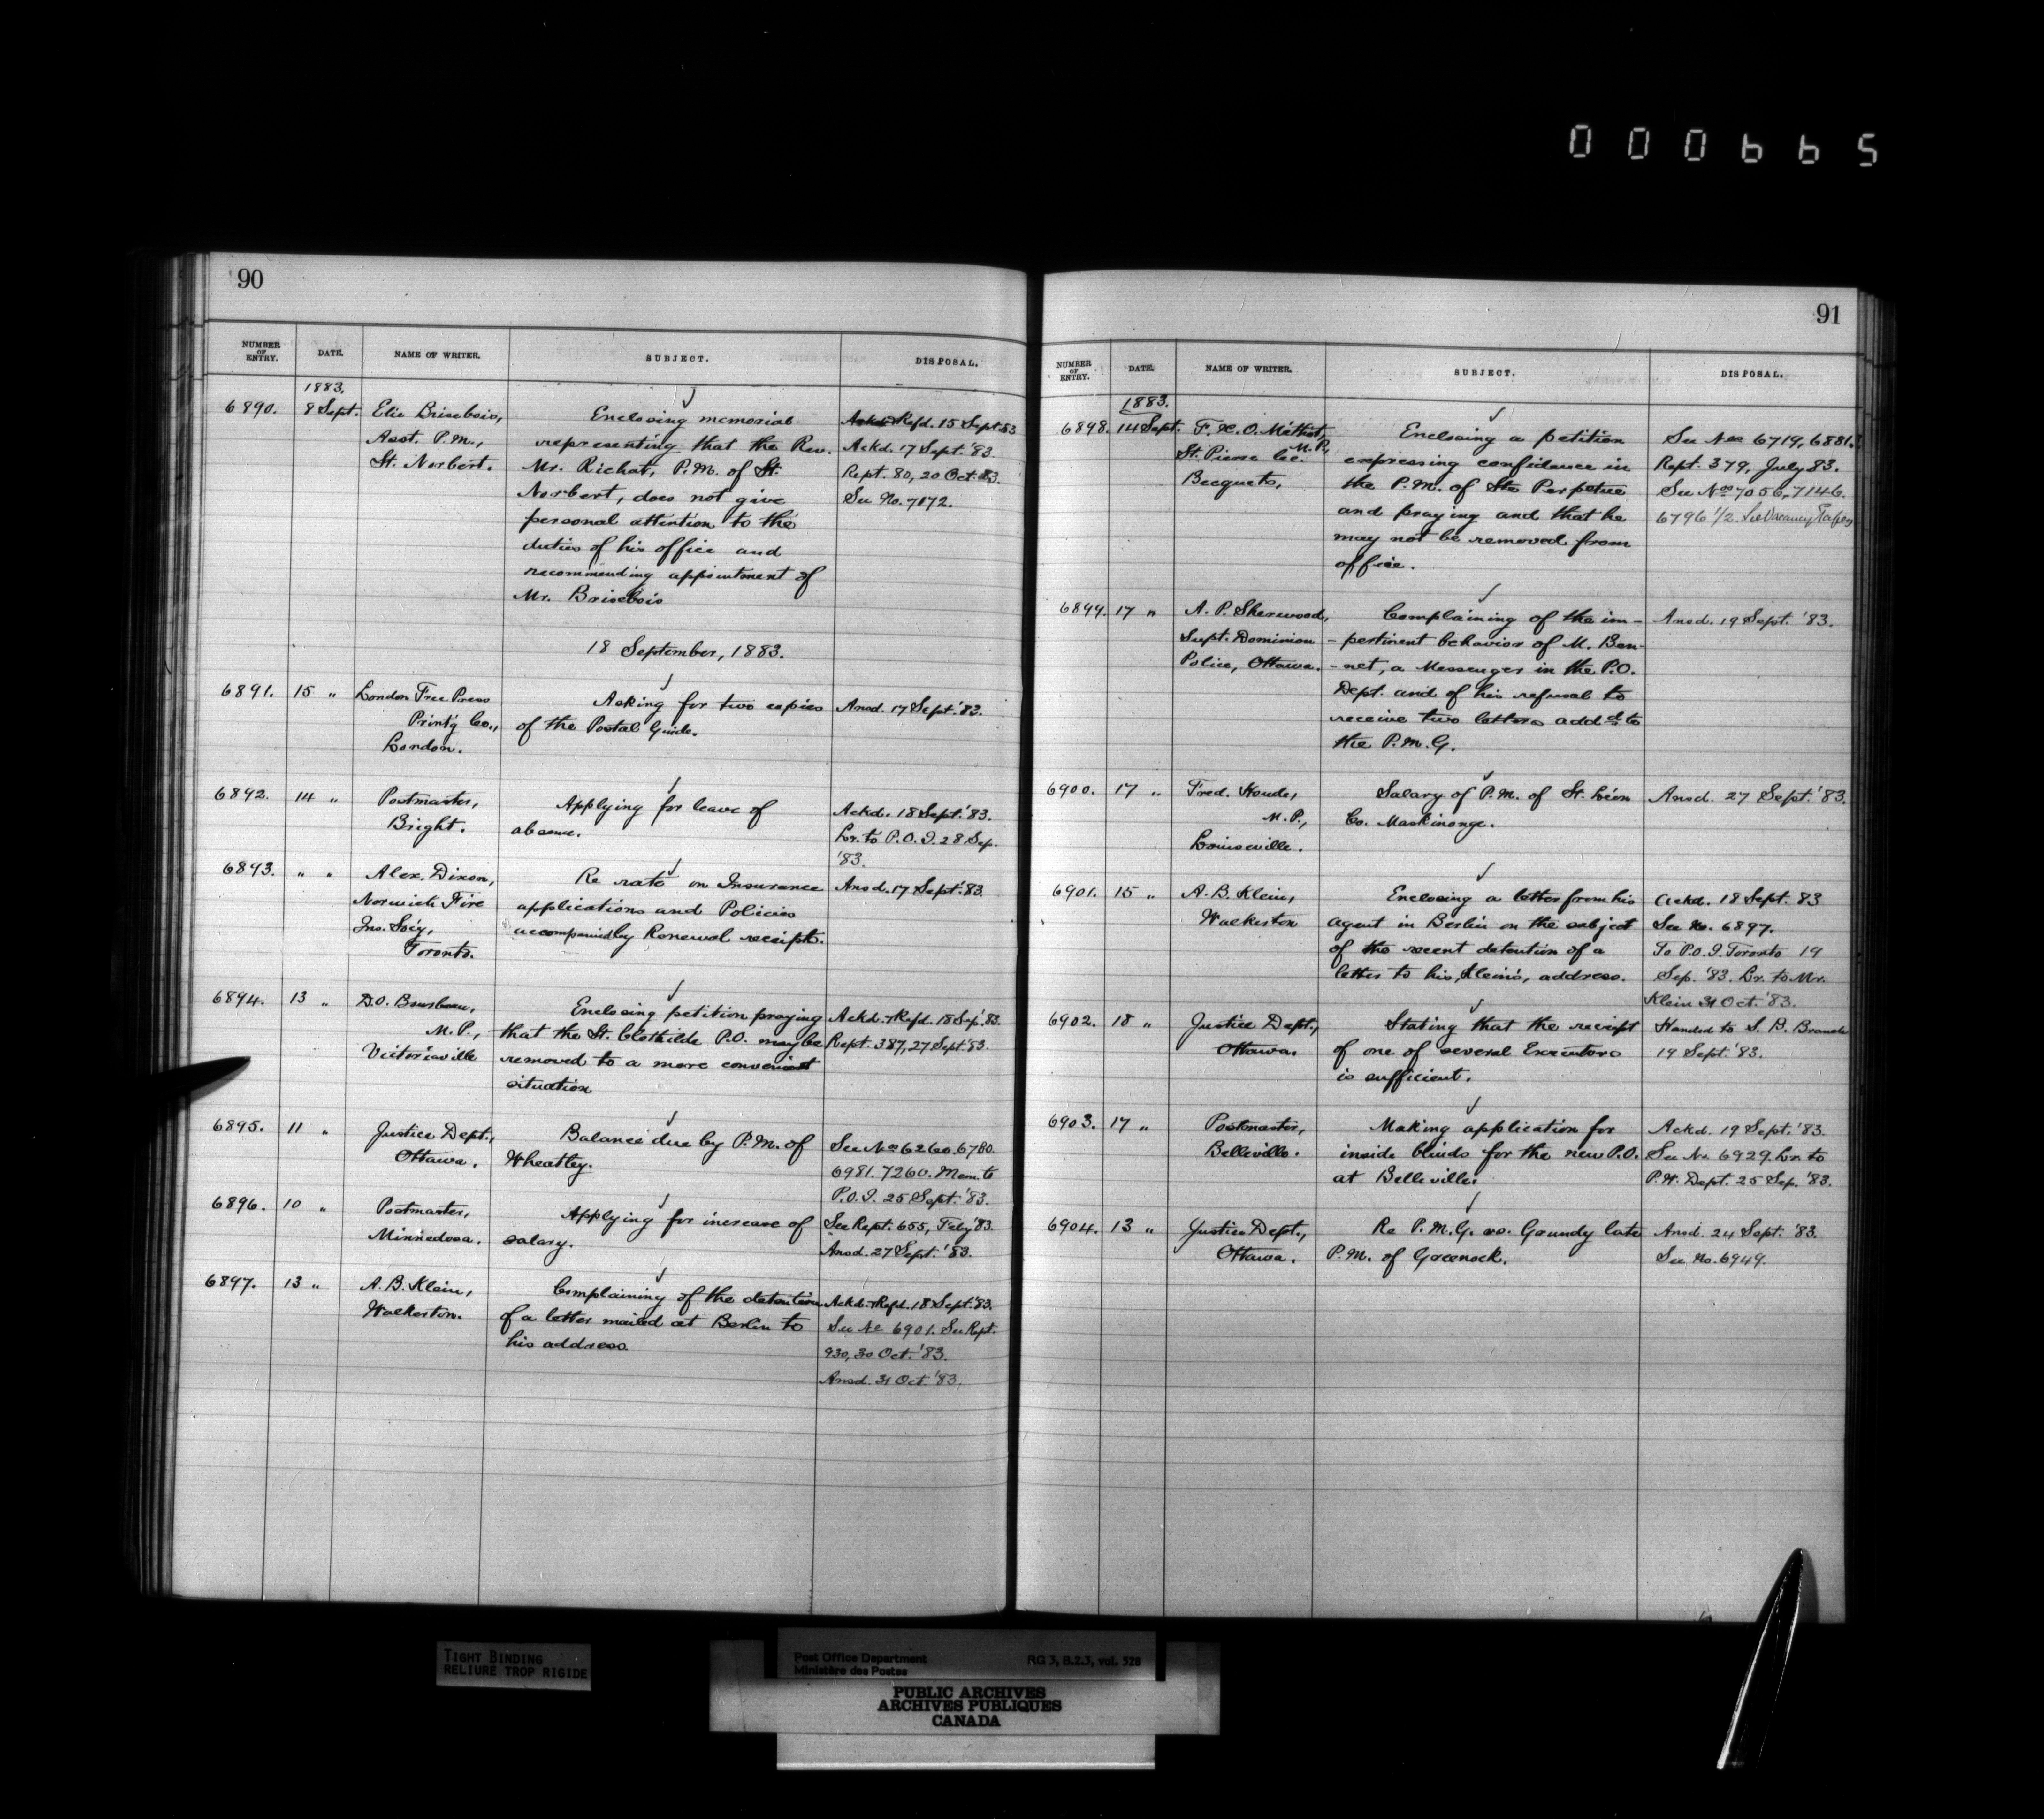 000665
90
NUMBER OF ENTRY. DATE. NAME OF WRITER. SUBJECT. DISPOSAL.
1883.
6890. 8 Sept. Elie Brisebois, Enclosing memorial Ackd Refd. 15 Sept. 83
Asst. P.M., representing that the Rev. Ackd. 17 Sept. '83.
St. Norbert. Mr. Richot, P.M. of St. Rept. 80, 20 Oct. 83.
Norbert, does not give See No. 7172.
personal attention to the
duties of his office and
recommending appointment of
Mr. Brisebois
18 September, 1883.
6891. 15 " London Free Press Asking for two copies Ansd. 17 Sept. '83.
Print'g Co., of the Postal Guide.
London.
6892. 14 " Postmaster, Applying for leave of Ackd. 18 Sept. '83.
Bright. absence. Lr. to P.O.I. 28 Sep.
'83.
6893. " " Alex. Dixon, Re rate on Insurance Ansd. 17 Sept. '83.
Norwich Fire applications and Policies
Ins. Soc'y, accompanied by Renewal receipts.
Toronto.
6894. 13 " D.O. Bourbeau, Enclosing petition praying Ackd. + Refd. 18 Sep. '83.
M.P., that the St. Clothilde P.O. may be Rept. 387, 27 Sept. '83.
Victoriaville removed to a more convenient
situation
6895. 11 " Justice Dept., Balance due by P.M. of See Nos 6260. 6780.
Ottawa. Wheatley. 6981. 7260. Mem. to
P.O.I. 25 Sept. '83.
6896. 10 " Postmaster, Applying for increase of See Rept. 655, Feby '83.
Minnedosa. salary. Ansd. 27 Sept. '83.
6897. 13 " A. B. Klein, Complaining of the detention Ackd. + Refd. 18 Sept. '83.
Walkerton. of a letter mailed at Berlin to See No 6901. See Rept.
his address. 930, 30 Oct. '83.
Ansd. 31 Oct. '83.
91
NUMBER OF ENTRY. DATE. NAME OF WRITER. SUBJECT. DISPOSAL.
1883.
6898. 14 Sept. F. X. O. Méthot, Enclosing a petition See Nos 6719, 6881.
M.P.,
St. Pierre les expressing confidence in Rept. 379, July 83.
Becquets, the P.M. of Ste Perpetue See Nos 7056, 7146.
and praying and that he 6796 1/2. See Vacancy Papers
may not be removed from
office.
6899. 17 " A. P. Sherwood, Complaining of the im- Ansd. 19 Sept. '83.
Supt. Dominion -pertinent behavior of M. Ben-
Police, Ottawa. -net, a Messenger in the P.O.
Dept. and of his refusal to
receive two letters addd. to
the P.M.G.
6900. 17 " Fred. Houde, Salary of P.M. of St. Léon Ansd. 27 Sept. '83.
M.P., Co. Maskinonge.
Louiseville.
6901. 15 " A. B. Klein, Enclosing a letter from his Ackd. 18 Sept. 83
Walkerton agent in Berlin on the subject See No. 6897.
of the recent detention of a To P.O.I. Toronto 19
letter to his, Klein's, address. Sep. '83. Lr. to Mr.
Klein 31 Oct. '83.
6902. 18 " Justice Dept., Stating that the receipt Handed to S. B. Branch
Ottawa. of one of several Executors 19 Sept. '83.
is sufficient.
6903. 17 " Postmaster, Making application for Ackd. 19 Sept. '83.
Belleville. inside blinds for the new P.O. See No. 6929. Lr. to
at Belleville. P.W. Dept. 25 Sep. '83.
6904. 13 " Justice Dept., Re P.M.G. vs. Grundy late Ansd. 24 Sept. '83.
Ottawa. P.M. of Greenock. See No. 6949.
TIGHT BINDING
RELIURE TROP RIGIDE
Post Office Department RG 3, B.2.3, vol. 528
Ministère des Postes
PUBLIC ARCHIVES
ARCHIVES PUBLIQUES
CANADA